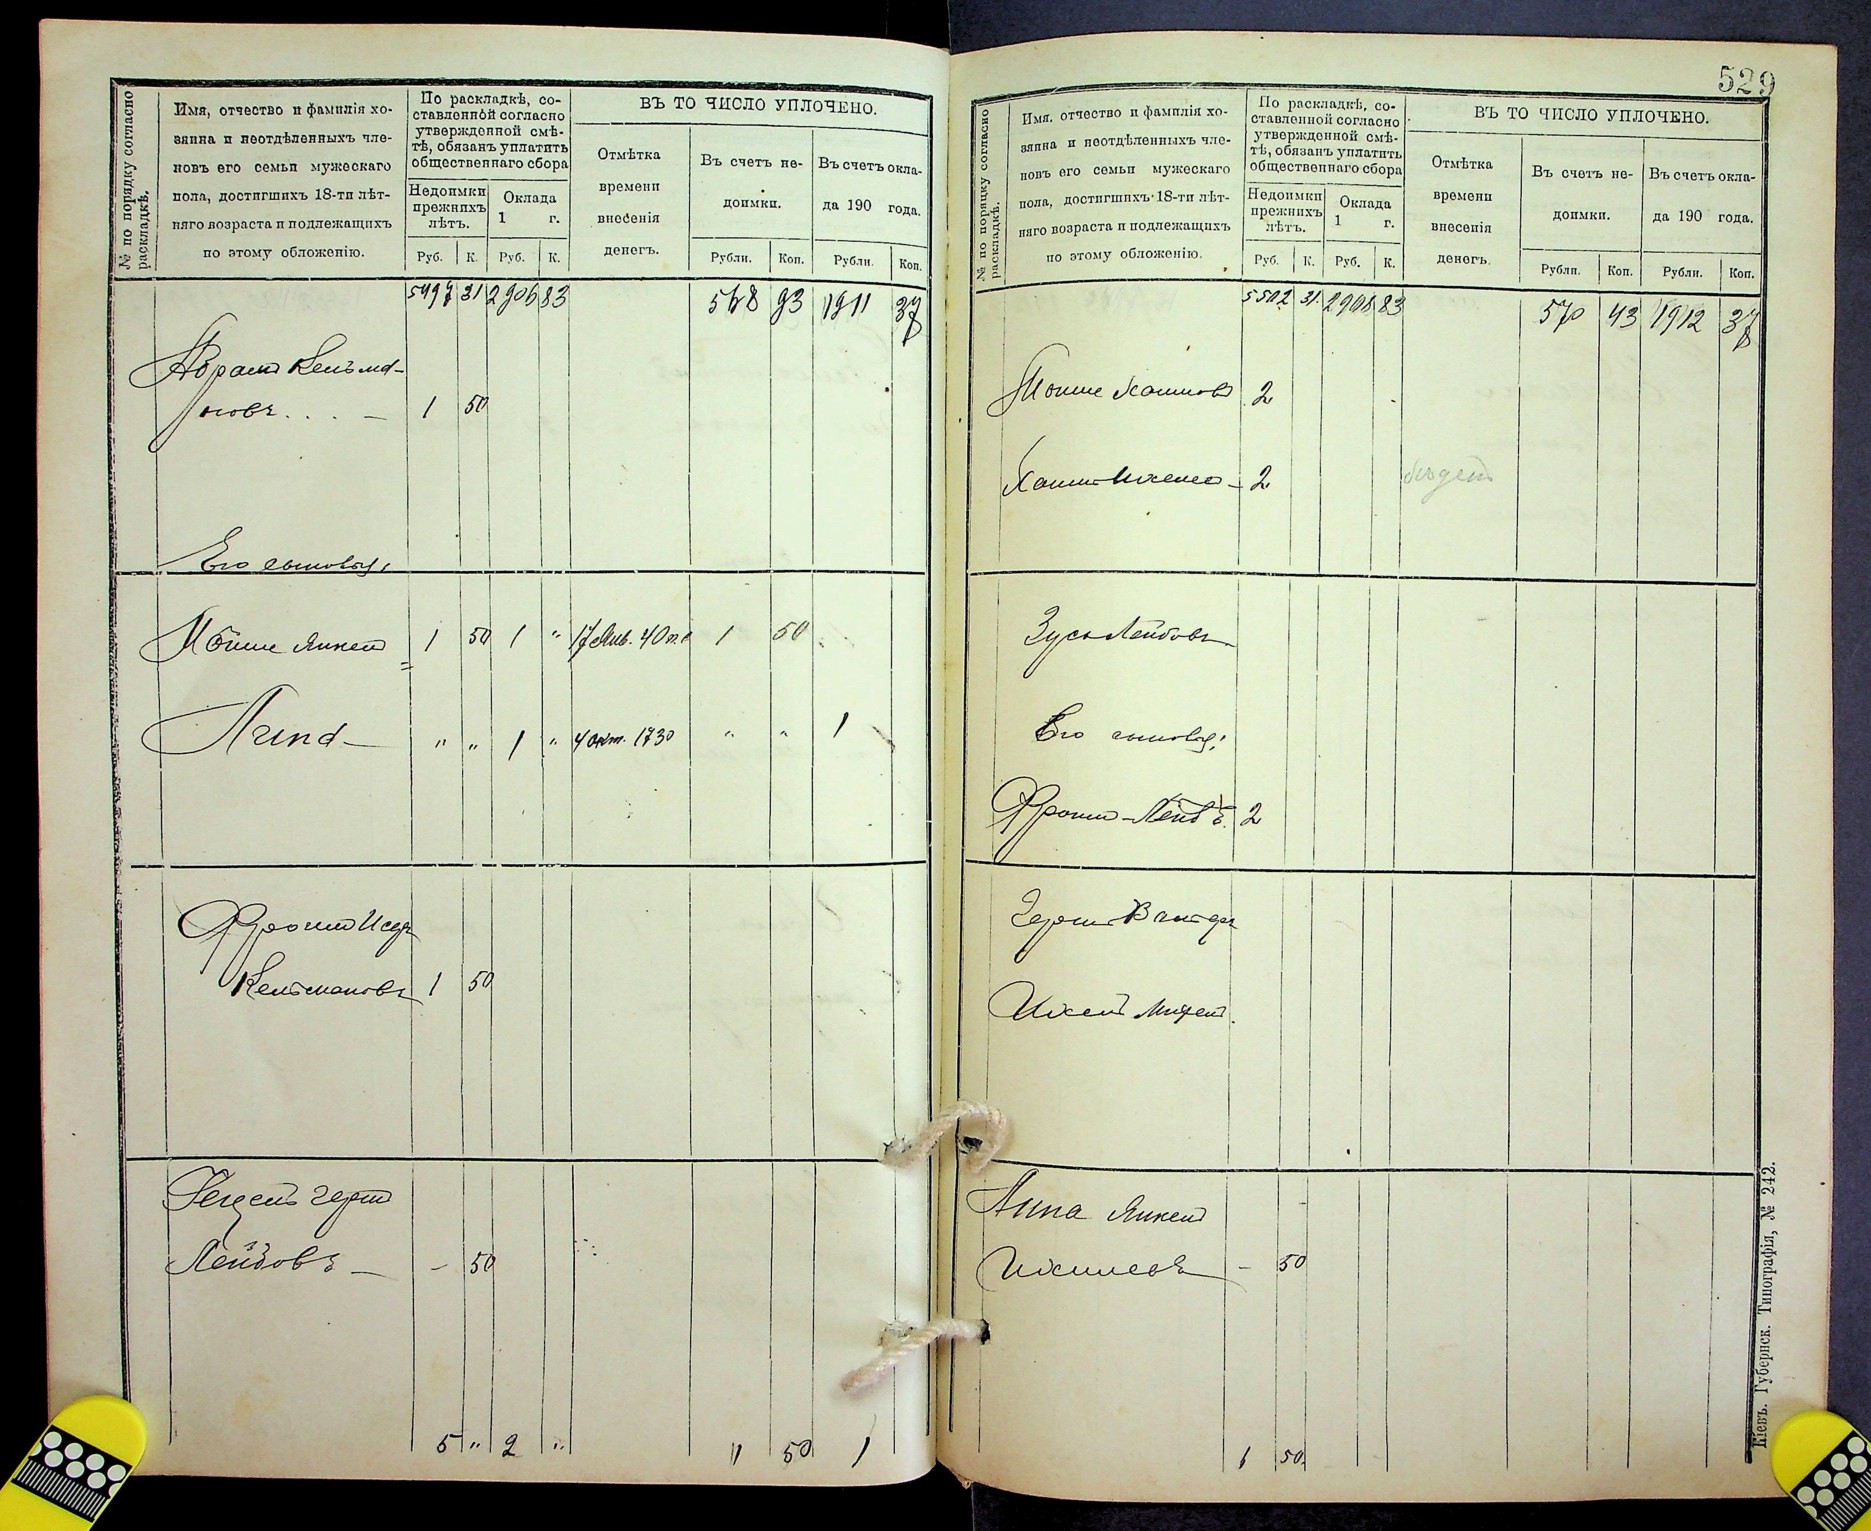 № по порядку согласно раскладкѣ.
Имя, отчество и фамилія хо-
зяина и неотдѣленныхъ чле-
новъ его семьи мужескаго
пола, достигшихъ 18-ти лѣт-
няго возраста и подлежащихъ
по этому обложенію.
По раскладкѣ, со-
ставленной согласно
утвержденной смѣ-
тѣ, обязанъ уплатить
общественнаго сбора
Недоимки
прежнихъ
лѣтъ.
Оклада
1 г.
Руб. К. Руб. К.
ВЪ ТО ЧИСЛО УПЛОЧЕНО.
Отмѣтка
времени
внесенія
денегъ.
Въ счетъ не-
доимки.
Въ счетъ окла-
да 190 года.
Рубли. Коп. Рубли. Коп.
5497 31 2906 83 568 93 1911 37
Абрамъ Кельма-
новъ . . . — 1 50
Его сыновья,
Мошка Янкель 1 50 1 " 17 Янв. 40 1 50
" " 1 " 4 окт. 1730 " " 1
Фроимъ
Кельмановъ 1 50
Герш
Лейбовъ — - 50
5 " 2 " 1 50 1
529
№ по порядку согласно раскладкѣ.
Имя, отчество и фамилія хо-
зяина и неотдѣленныхъ чле-
новъ его семьи мужескаго
пола, достигшихъ 18-ти лѣт-
няго возраста и подлежащихъ
по этому обложенію.
По раскладкѣ, со-
ставленной согласно
утвержденной смѣ-
тѣ, обязанъ уплатить
общественнаго сбора
Недоимки
прежнихъ
лѣтъ.
Оклада
1 г.
Руб. К. Руб. К.
ВЪ ТО ЧИСЛО УПЛОЧЕНО.
Отмѣтка
времени
внесенія
денегъ.
Въ счетъ не-
доимки.
Въ счетъ окла-
да 190 года.
Рубли. Коп. Рубли. Коп.
5502 31 2908 83 570 43 1912 37
Хаимовъ 2
Хаимъ — 2
Зусь Лейбовъ
Его сыновья:
Фроимъ-Лейбъ. 2
Герш
Янкель
- 50
1 50
Кіевъ. Губернск. Типографія, № 242.